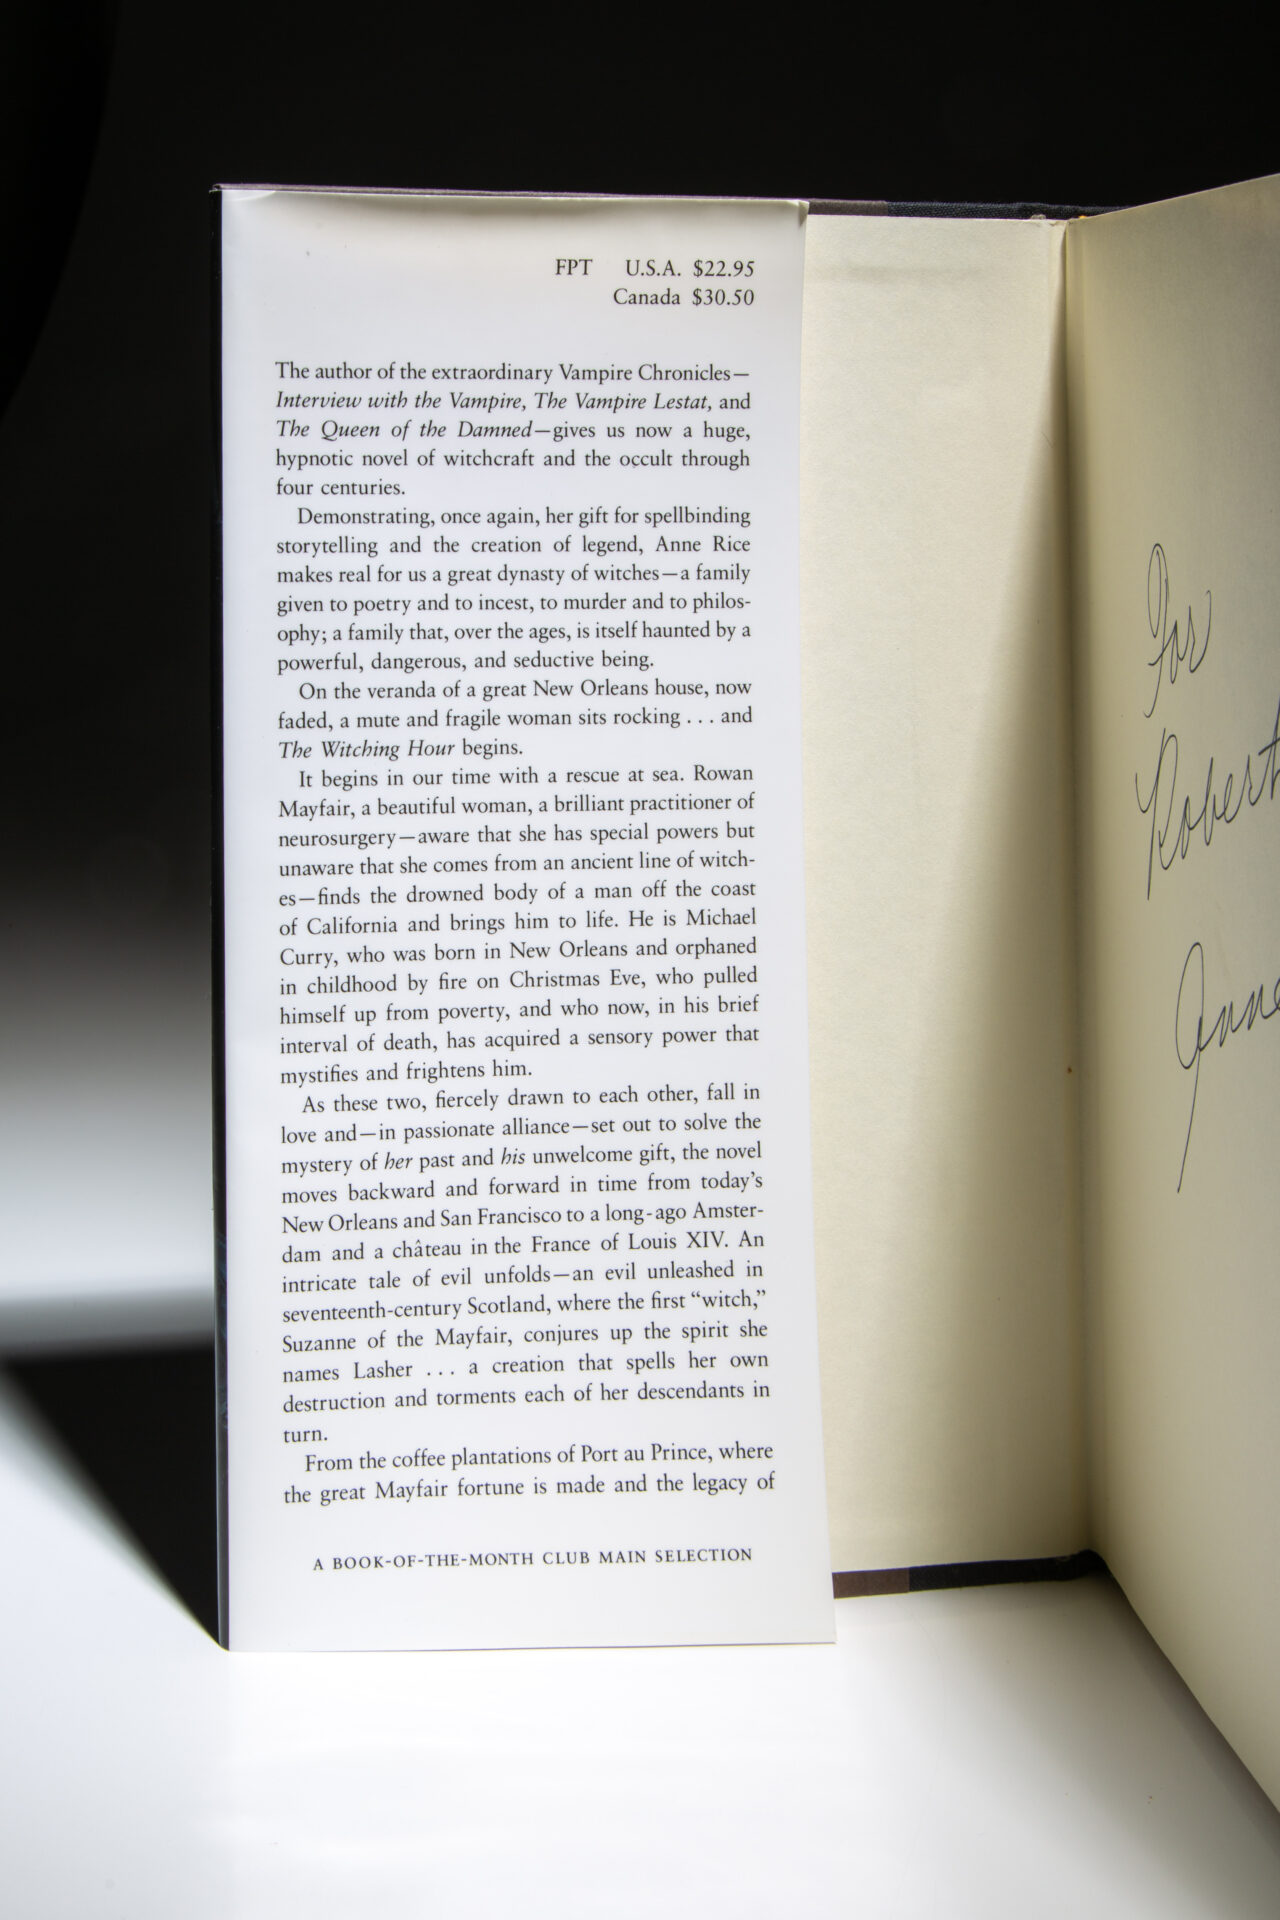 FPT U.S.A. $22.95
Canada $30.50
The author of the extraordinary Vampire Chronicles—
Interview with the Vampire, The Vampire Lestat, and
The Queen of the Damned—gives us now a huge,
hypnotic novel of witchcraft and the occult through
four centuries.
Demonstrating, once again, her gift for spellbinding
storytelling and the creation of legend, Anne Rice
makes real for us a great dynasty of witches—a family
given to poetry and to incest, to murder and to philos-
ophy; a family that, over the ages, is itself haunted by a
powerful, dangerous, and seductive being.
On the veranda of a great New Orleans house, now
faded, a mute and fragile woman sits rocking . . . and
The Witching Hour begins.
It begins in our time with a rescue at sea. Rowan
Mayfair, a beautiful woman, a brilliant practitioner of
neurosurgery—aware that she has special powers but
unaware that she comes from an ancient line of witch-
es—finds the drowned body of a man off the coast
of California and brings him to life. He is Michael
Curry, who was born in New Orleans and orphaned
in childhood by fire on Christmas Eve, who pulled
himself up from poverty, and who now, in his brief
interval of death, has acquired a sensory power that
mystifies and frightens him.
As these two, fiercely drawn to each other, fall in
love and—in passionate alliance—set out to solve the
mystery of her past and his unwelcome gift, the novel
moves backward and forward in time from today's
New Orleans and San Francisco to a long-ago Amster-
dam and a château in the France of Louis XIV. An
intricate tale of evil unfolds—an evil unleashed in
seventeenth-century Scotland, where the first “witch,”
Suzanne of the Mayfair, conjures up the spirit she
names Lasher . . . a creation that spells her own
destruction and torments each of her descendants in
turn.
From the coffee plantations of Port au Prince, where
the great Mayfair fortune is made and the legacy of
A BOOK-OF-THE-MONTH CLUB MAIN SELECTION
For
Robert
Anne